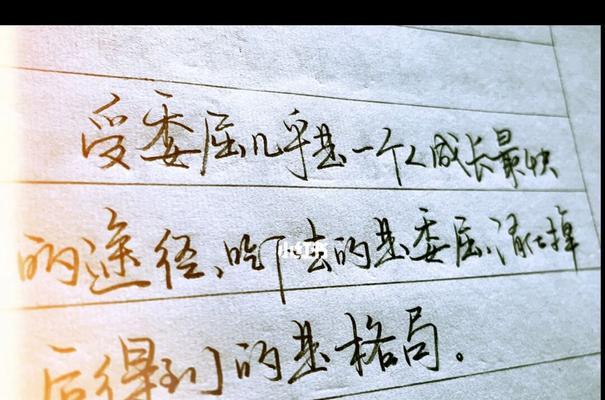 受委屈几乎是一个人成长最快
的途径、吃下去的是委屈、消化掉
后得到的是格局。
小红书